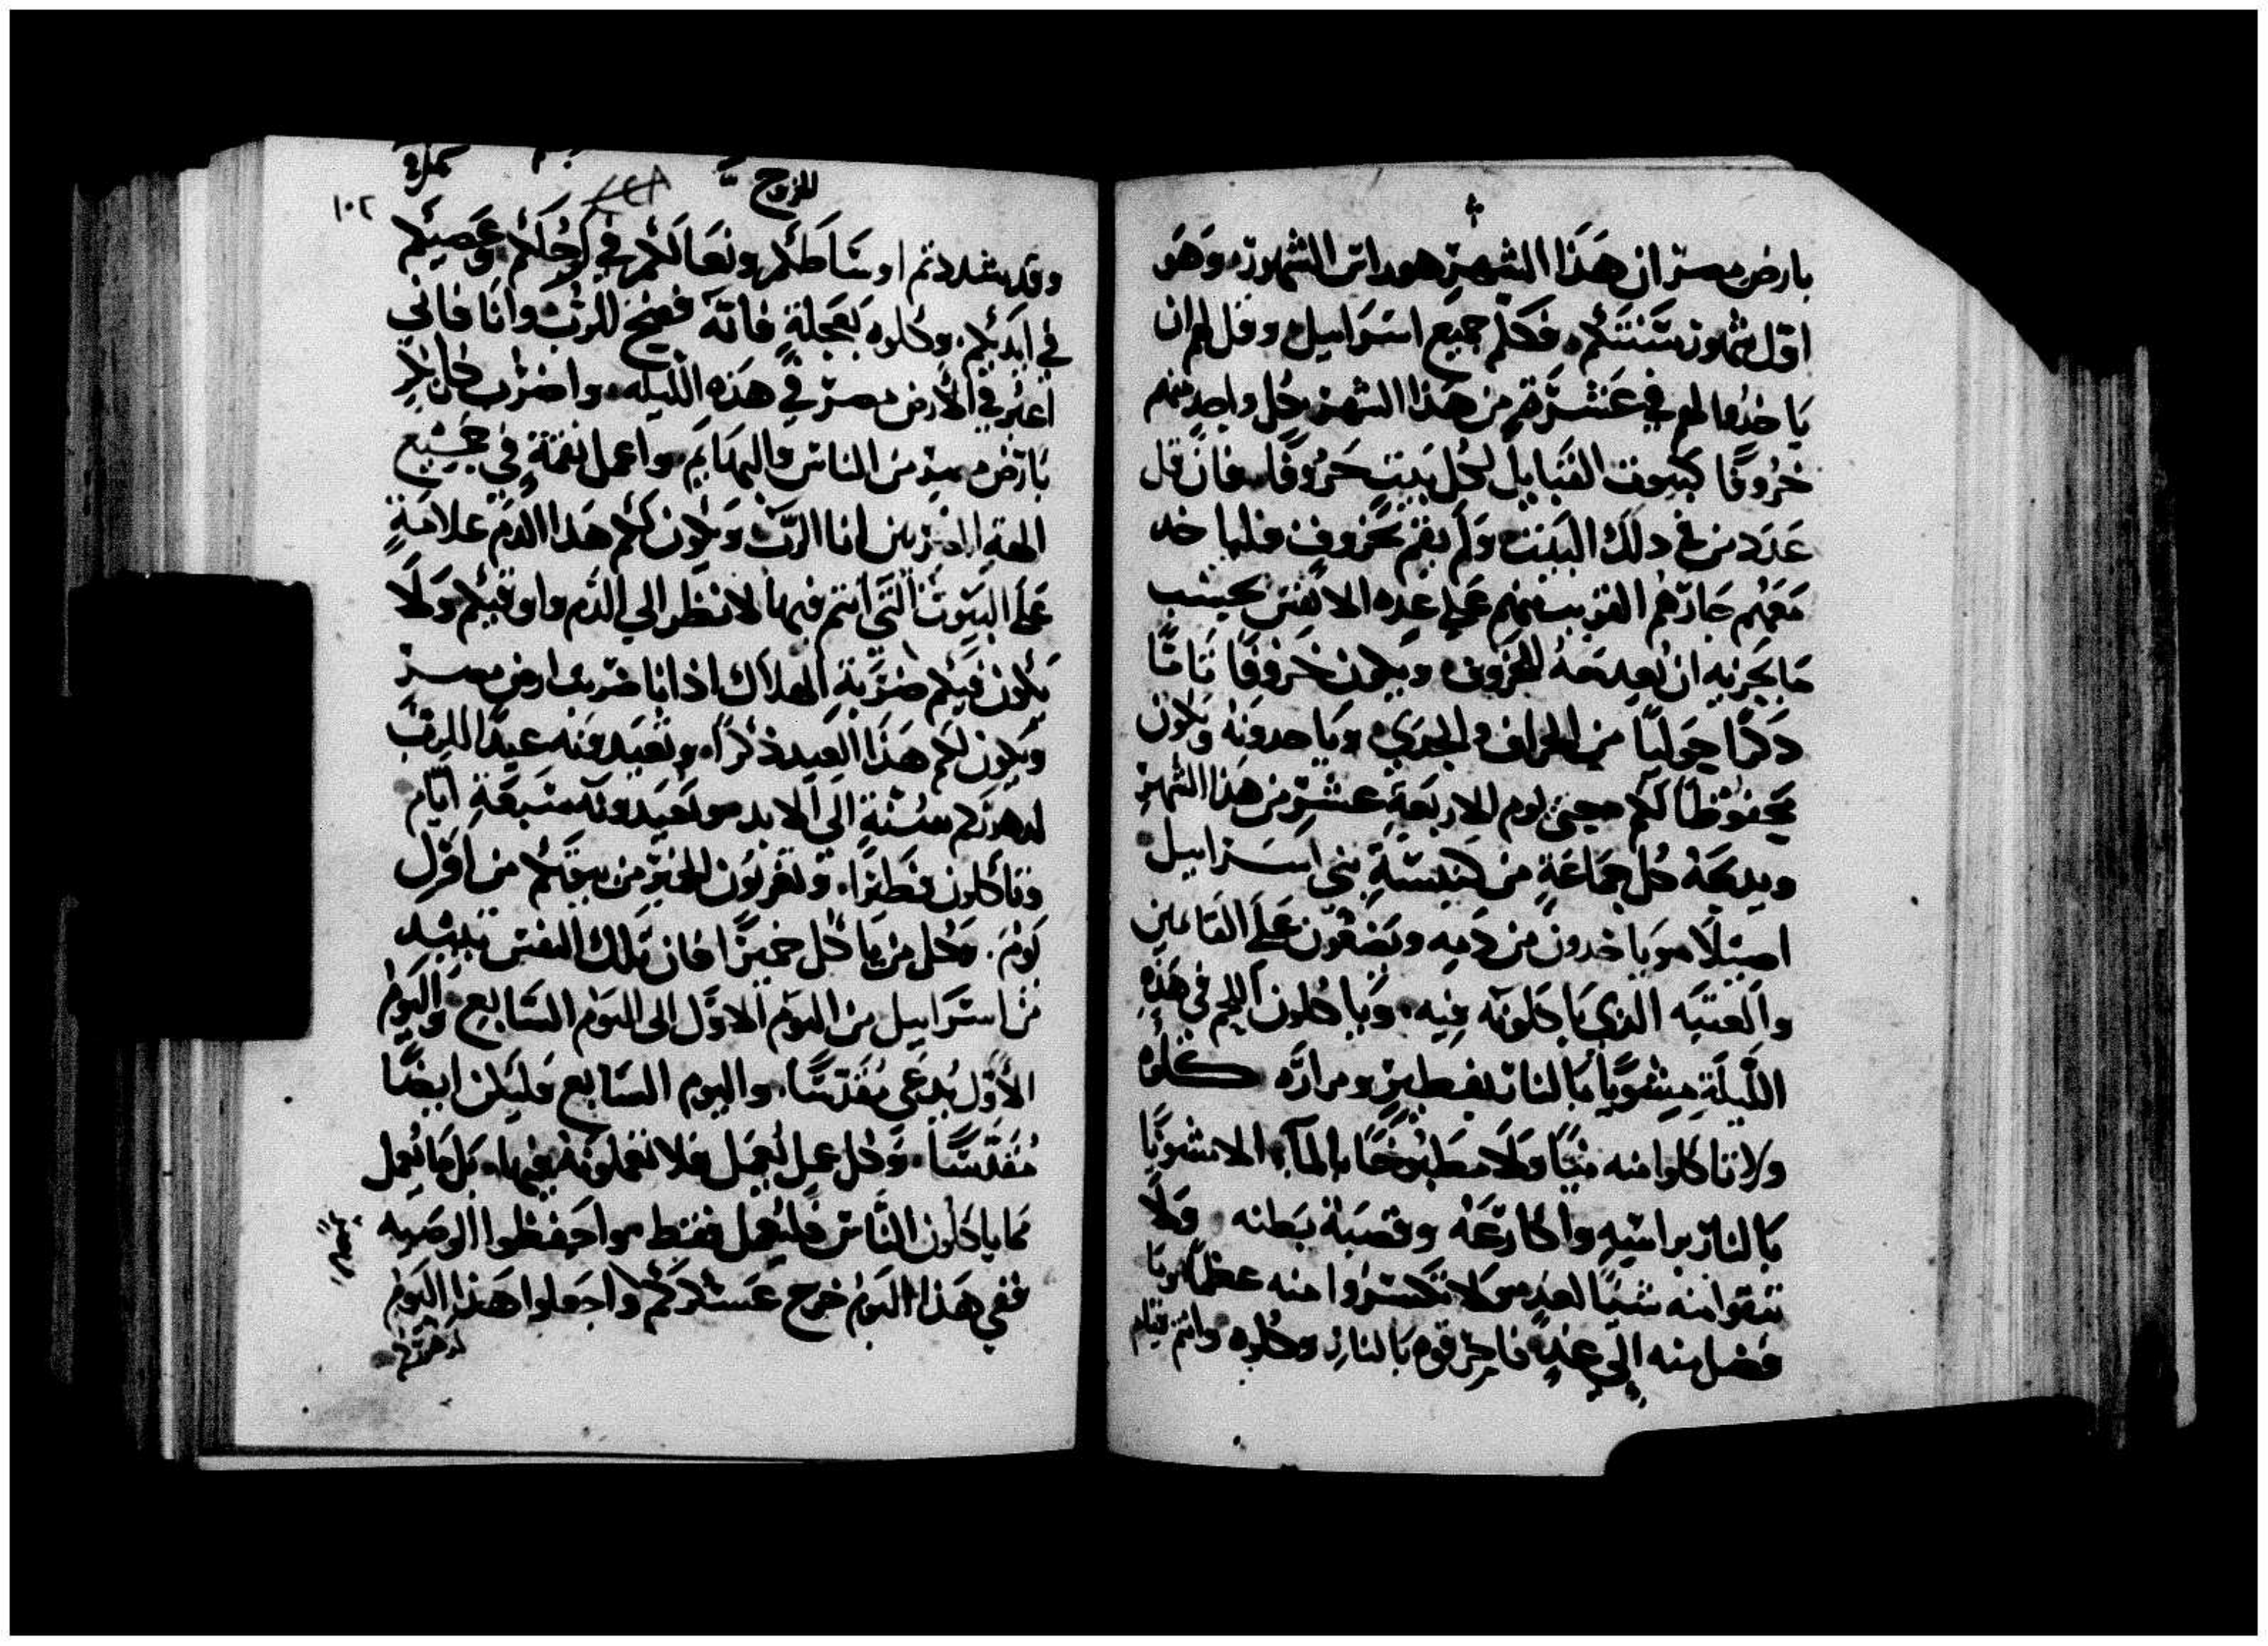 بارض مصر ان هَذَا الشهر هو راس الشهور، وَهَو
اول شهور سَنَتكُم، فكلم جميع اسرَاييل وقل لهم ان
يَاخذوا لهم في عَشرَة من هَذا الشهر كل واحد منهم
خرُوفًا كبيوت القبَايل لكُل بَيت خَرُوفًا، فان قل
عَدَد من في دلك البَيت وَلَم يقم بخروف فلياخد
مَعَهُم جَارَهُم القريب منهم عَلي عده الانفس بحسب
مَا يجزيه ان يعد مَعَهُ للخروف، وَيكون خروفًا تَامًا
دَكرًا حوليًا من الخراف والجدي، ويَاخدونه ويكون
محفُوظًا لَكُم حتي يوم الاربَعَة عشر من هذا الشهر
ويدبحَهُ كُل جمَاعَة من كنيسَة بني اسرَاييل
اصيلًا، ويَاخدون من دَمِه ويَضعُون عَلَى القَايمين
وَالعتبَه الذي يَاكلونَه فيه، وَيَاكلون اللحم في هَذِه
اللّيلَة مشويًا بالنار بفطير ومرارَه كلُوه
ولا تاكلوا منه نيًا وَلَا مطبُوخًا بالمآء، الا مشويًا
بَالنار براسِه واكارعَهُ وقصبَة بَطنه، وَلَا
تبقوا منه شيًا لغد، وَلَا تكسرُوا منه عظمًا، ومَا
فضل منه إلي غدٍ فاحرقوه بَالنار وكلوه وانتم قيام
للخروج
١٠٢
وقد شددتم اوسَاطكُم ونعَالكُم في ارجُلكُم وعَصيكُم
في ايديكُم، وكلوه بعَجلة فانَه فصح للرب، وانَا فاني
اعبُر في الأرض مصر في هَذه اللّيله، واضرب كل بكر
بَارض مصر من الناس والبهَايم، واعمل نقمَة في جميع
الهة المصريين انا الرّب، وَيكون لَكُم هذا الدم علَامَة
عَلَى البيوت التي انتم فيها، لانظر الي الدّم واوقيكم وَلَا
يَكون فيكم ضربَة الهلَاك اذا انا ضربت ارض مصر
وَيكون لَكُم هَذَا العيد ذكرًا، وتعَيدونه عيدًا للرب
لدهوركُم سُنّة الَى الابد، وتعَيدونَه سَبعَة ايّام
وتاكلون فطيرًا، وتفرغُون الخمير من بيوتكم من اول
يَوم، وكل من يَاكل خميرًا فان تلك النفس تبيد
من اسرَاييل من اليَوم الاوّل الى اليَوم السَّابع، وَاليَوم
الأوّل يُدعَى مُقدسًا، واليوم السّابع فليَكن ايضًا
مُقدّسًا، وكل عمل يُعمَل فلا تعملونه فيها، بَل مَا يُعمل
مما ياكلون النّاس فليُعمل فقط، واحفظوا الوَصيه
ففي هَذا اليَوم خرج عَسكركُم، واجعلوا هَذا اليَوم
لدهوركم